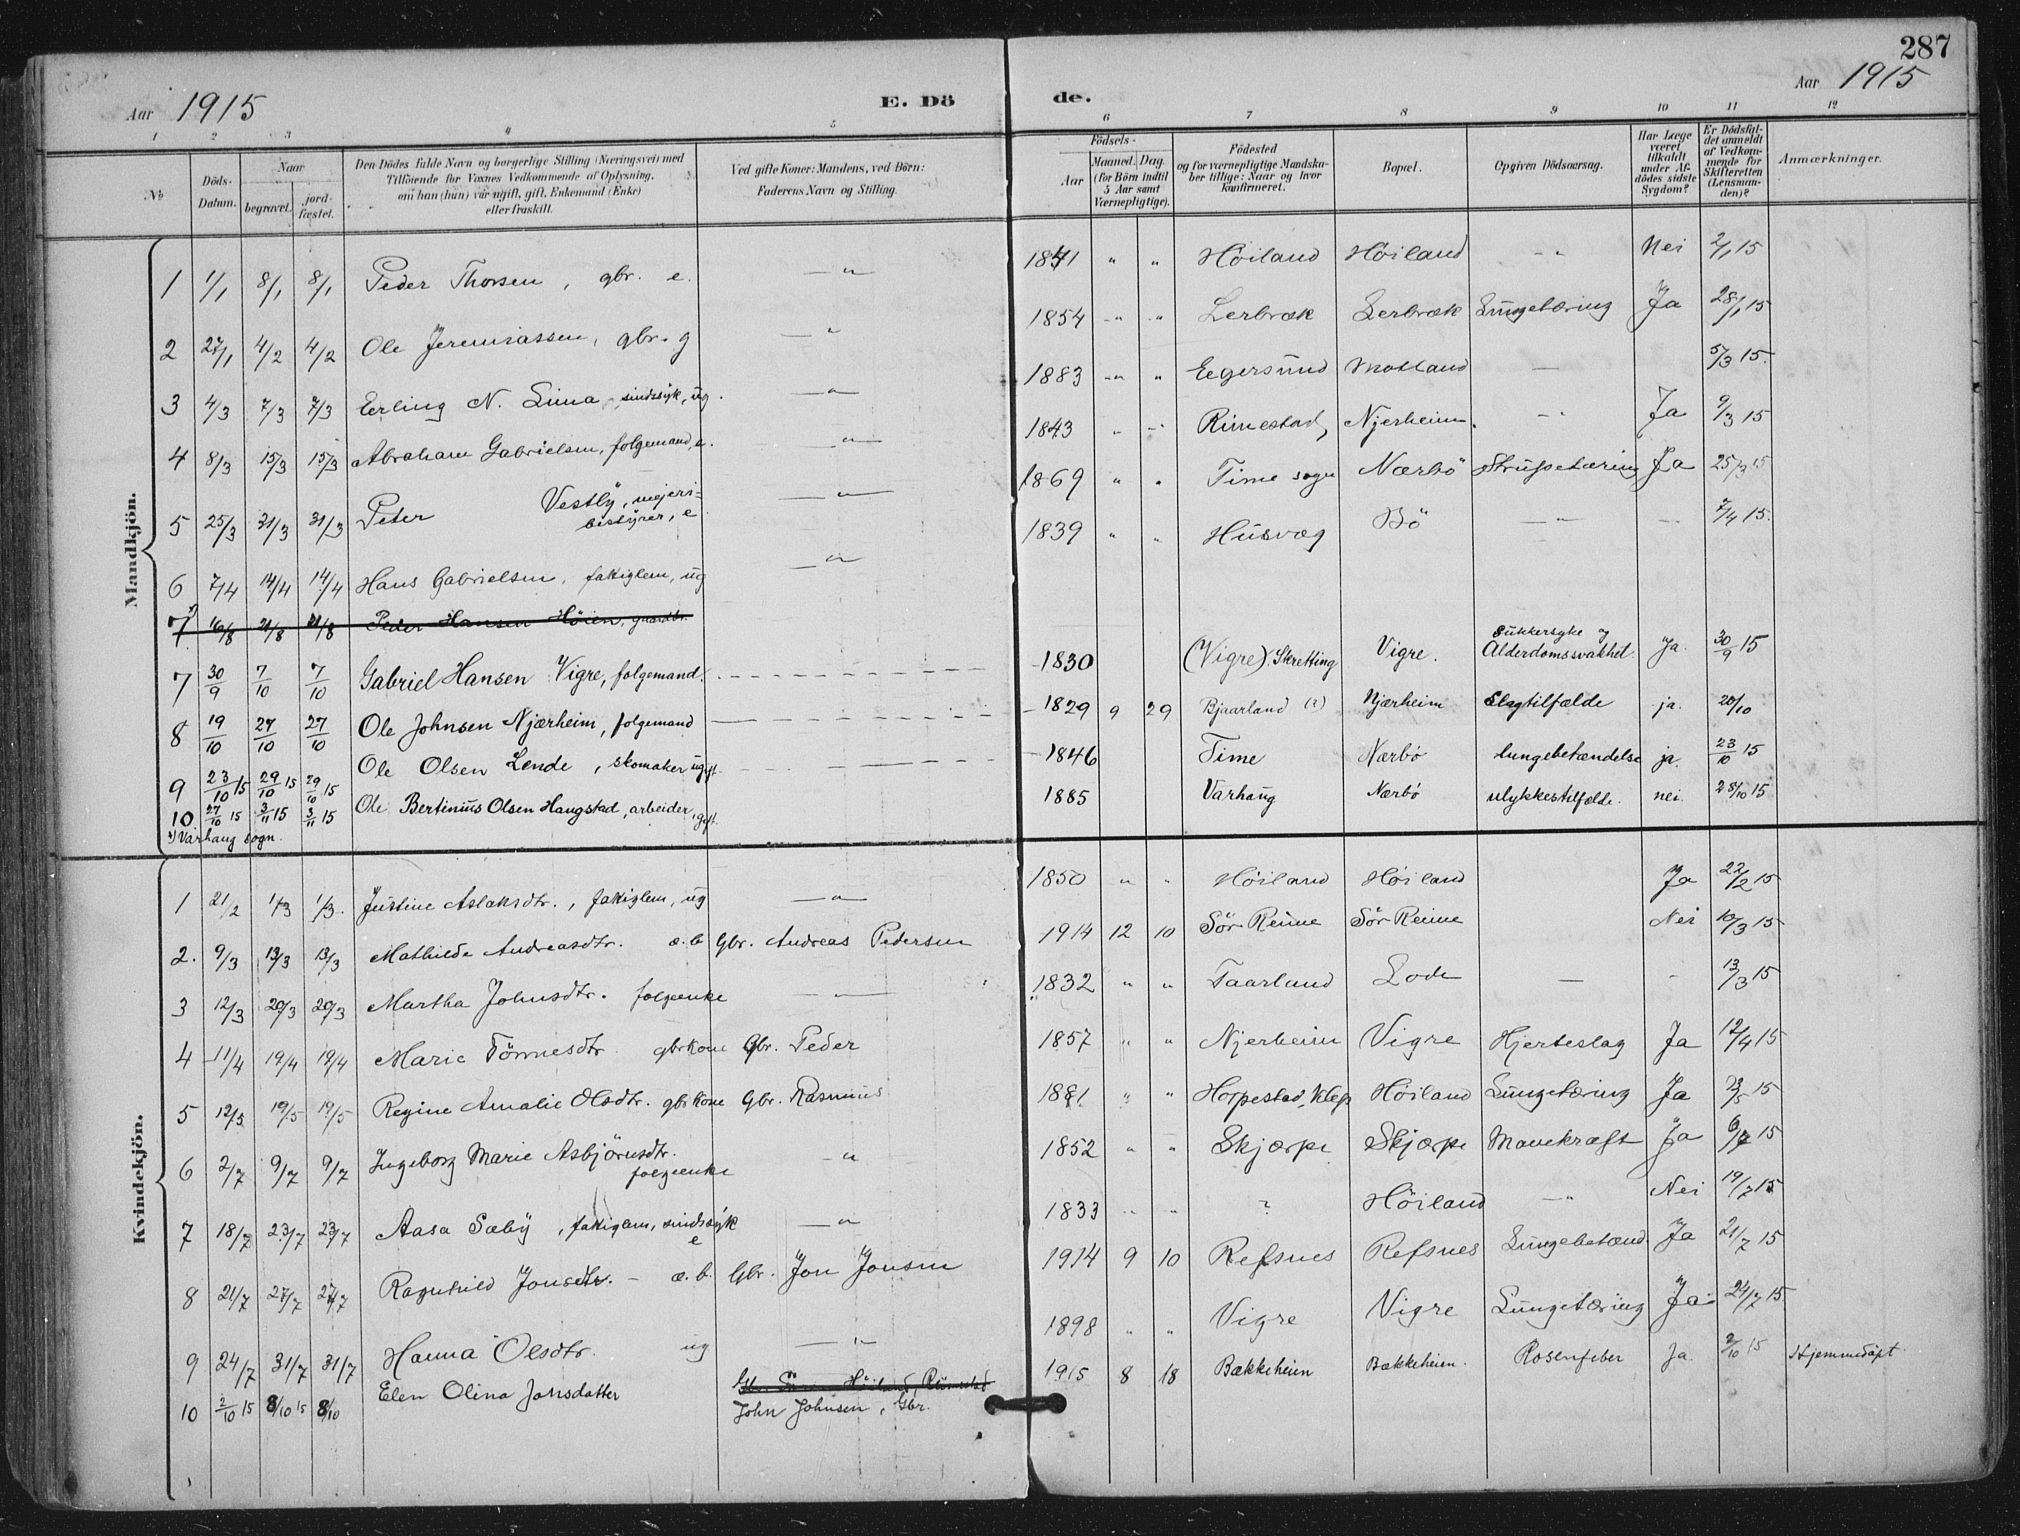 287
Aar 1915 E. Dö de. Aar 1915
1 2 3 4 5 6 7 8 9 10 11 12
№
Döds-Datum.
Naar
begravet.
jord-fæstet.
Den Dödes fulde Navn og borgerlige Stilling (Næringsvei) med
Tilföiende for Voxnes Vedkommende af Oplysning,
om han (hun) var ugift, gift, Enkemand (Enke)
eller fraskilt.
Ved gifte Koner: Mandens, ved Börn:
Faderens Navn og Stilling.
Födsels-
Aar
Maaned. Dag.
(for Börn indtil
5 Aar samt
Værnepligtige).
Födested
og for værnepligtige Mandska-
ber tillige: Naar og hvor
konfirmeret.
Bopæl.
Opgiven Dödsaarsag.
Har Læge
været
tilkaldt
under Af-
dödes sidste
Sygdom?
Er Dödsfal-
det anmeldt
af Vedkom-
mende for
Skifteretten
(Lensman-
den)?
Anmærkninger.
Mandkjön.
1 1/1 8/1 8/1 Peder Thorsen, gbr. e. — " 1841 " " Höiland Höiland - " Nei 2/1 15
2 27/1 4/2 4/2 Ole Jeremiassen, gbr. g — " 1854 " " Lerbræk Lerbræk Lungetæring Ja 28/1 15
3 4/3 7/3 7/3 Erling N. Lima, sindssyk, ug. — " 1883 " " Egersund Motland — 5/3 15.
4 8/3 15/3 15/3 Abraham Gabrielsen, folgemand, e. — " — 1843 " " Rimestad, Njerheim. - " Ja 9/3 15
5 25/3 31/3 31/3 Peter Vestly, mejeri-
bestyrer, e — " — 1869 " " Time sogn Nærbö Strupetæring Ja 25/3 15
6 7/4 14/4 14/4 Hans Gabrielsen, fattiglem, ug — " 1839 " " Husvæg Bö — " — 7/4 15.
7 16/8 21/8 21/8 Peder Hansen Höien, gaardbr.
7 30/9 7/10 7/10 Gabriel Hansen Vigre, folgemand. 1830 (Vigre) Skretting Vigre. Sukkersyke og
Alderdomssvakhet. Ja. 30/9 15
8 19/10 27/10 27/10 Ole Johnsen Njærheim, folgemand 1829 9 29 Bjaarland (?) Njærheim Slagtilfælde ja. 20/10
9 23/10 15 29/10 15 29/10 15 Ole Olsen Lende, skomaker ugift. 1846 Time Nærbö lungebetændelse ja. 23/10 15
10 27/10 15 3/11 15 3/11 15 Ole Bertinius Olsen Haugstad, arbeider, gift. 1885 Varhaug Nærbö ulykkestilfælde. nei. 28/10 15
1) Varhaug sogn.
Kvindekjön.
1 21/2 1/3 1/3. Justine Aslaksdtr., fattiglem, ug — " — 1850 " " Höiland Höiland Ja 22/2 15
2. 9/3 13/3 13/3 Mathilde Andreasdtr. æ. b Gbr. Andreas Pedersen 1914 12 10 Sör Reime Sör Reime Nei 10/3 15
3 12/3 20/3 20/3 Martha Johnsdtr. folgeenke — " — 1832 " " Taarland Lode — - 13/3 15
4 11/4 19/4 19/4 Marie Tönnesdtr. gbrkone Gbr. Peder 1857 " " Njerheim Vigre Hjerteslag Ja 12/4 15
5 12/5 19/5 19/5 Regine Amalie Olsdtr. gbrkone Gbr. Rasmus 1881 " " Horpestad, Klep Höiland Lungetæring Ja 15
6 2/7 9/7 9/7 Ingeborg Marie Asbjörnsdtr.
folgeenke - " 1852 " " Skjærpe Skjærpe Mavekræft Ja 6/7 15
7 18/7 23/7 23/7 Aasa Sæby, fattiglem, sindssyk
e — " 1833 " " ? Höiland — " Nei 19/7 15
8 21/7 27/7 27/7 Ragnhild Jonsdtr. - æ. b. Gbr. Jon Jonsen 1914 9 10 Refsnes Refsnes Lungebetænd Ja 21/7 15
9 24/7 31/7 31/7 Hanna Olsdtr. ug — " — 1898 " " Vigre Vigre Lungetæring Ja 24/7 15
10 2/10 15 8/10 15 8/10 Elen Olina Jonsdatter Höiland,
John Johnsen, Gbr. 1915 8 18 Bækkeheien Bækkeheien. Rosenfeber Ja. 2/10 15 Hjemmedöpt